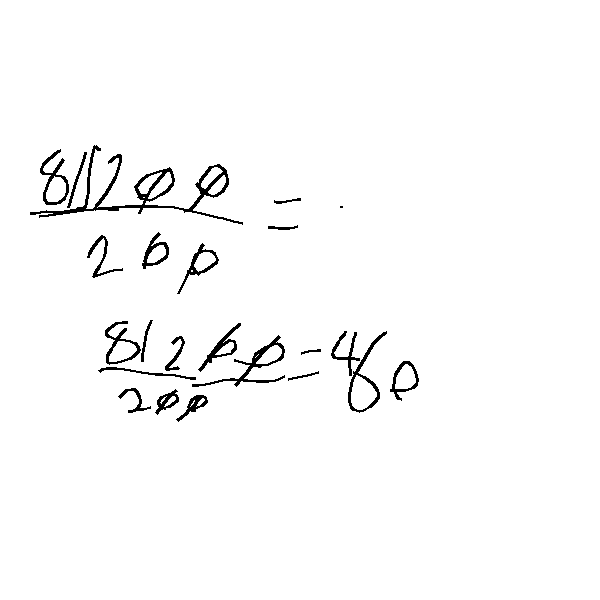 81200
200 =
81200
200 = 460